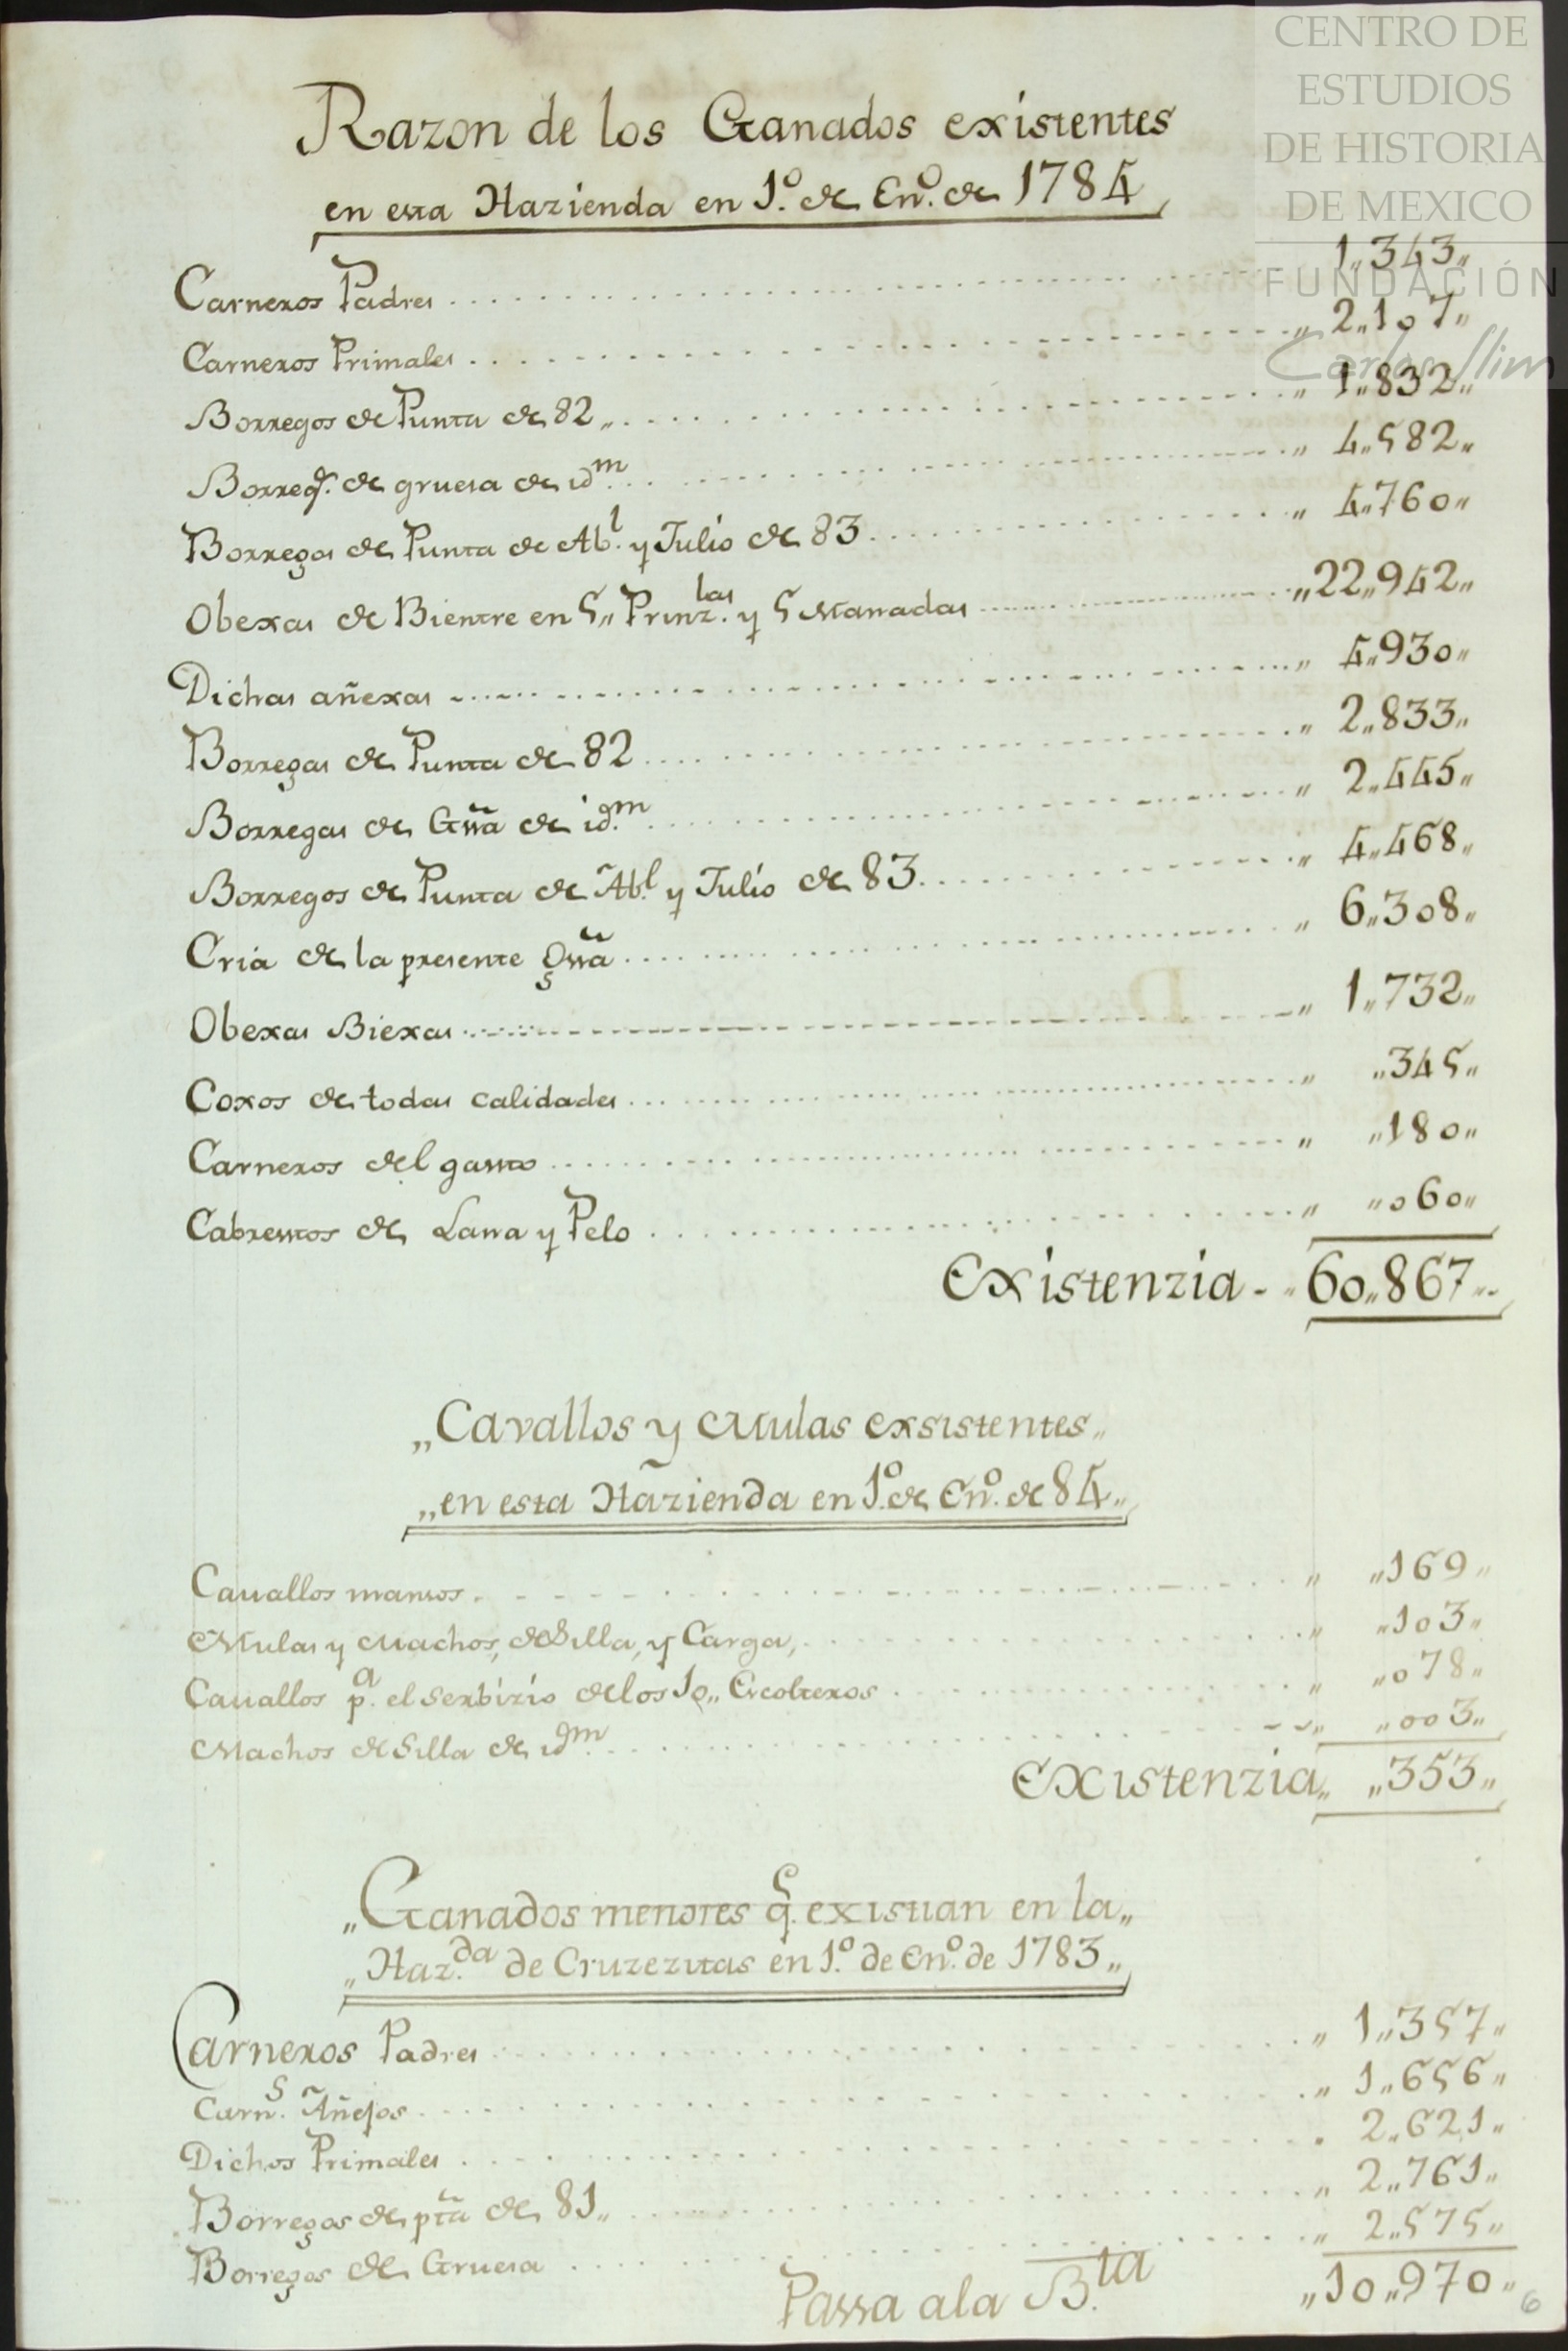 CENTRO DE
ESTUDIOS
DE HISTORIA
DE MEXICO
FUNDACIÓN
Carlos Slim
Razon de los Ganados existentes
en esta Hazienda en 1.º de En.º de 1784
Carneros Padres 1,,343,,
Carneros Primales ,, 2,,107,,
Borregos de Punta de 82,, ,, 1,,832,,
Borreg.s de gruesa de id.m ,, 4,,582,,
Borregos de Punta de Ab.l y Julio de 83 ,, 4,,760,,
Obexas de Bientre en 5,, Prinz.las y 5 Manadas ,,22,,942,,
Dichas añexas ,, 4,,930,,
Borregas de Punta de 82 ,, 2,,833,,
Borregas de Gssa de id.m ,, 2,,445,,
Borregos de Punta de Ab.l y Julio de 83 ,, 4,,468,,
Cria de la presente Gssa ,, 6,,308,,
Obexas Biexas ,, 1,,732,,
Coxos de todas calidades ,, ,,345,,
Carneros del gasto ,, ,,180,,
Cabrestos de Lana y Pelo ,, ,,060,,
Existenzia - ,,60,,867,,
,,Cavallos y Mulas exsistentes,,
,,en esta Hazienda en 1.º de En.º de 84,,
Cauallos mansos ,, ,,169,,
Mulas y Machos, de Silla, y Carga, ,, ,,103,,
Cauallos p.a el Serbizio de los 10,, Escolteros ,, ,,078,,
Machos de Silla de idm ,, ,,003,,
Existenzia,, ,,353,,
,,Ganados menores q.e existian en la,,
,,Haz.da de Cruzezitas en 1.º de En.º de 1783,,
Carneros Padres ,, 1,,357,,
Carn.s Añejos ,, 1,,656,,
Dichos Primales ,, 2,,621,,
Borregos de pta de 81,, ,, 2,,761,,
Borregos de Gruesa ,, 2,,575,,
Passa a la B.ta ,,10,,970,,
6